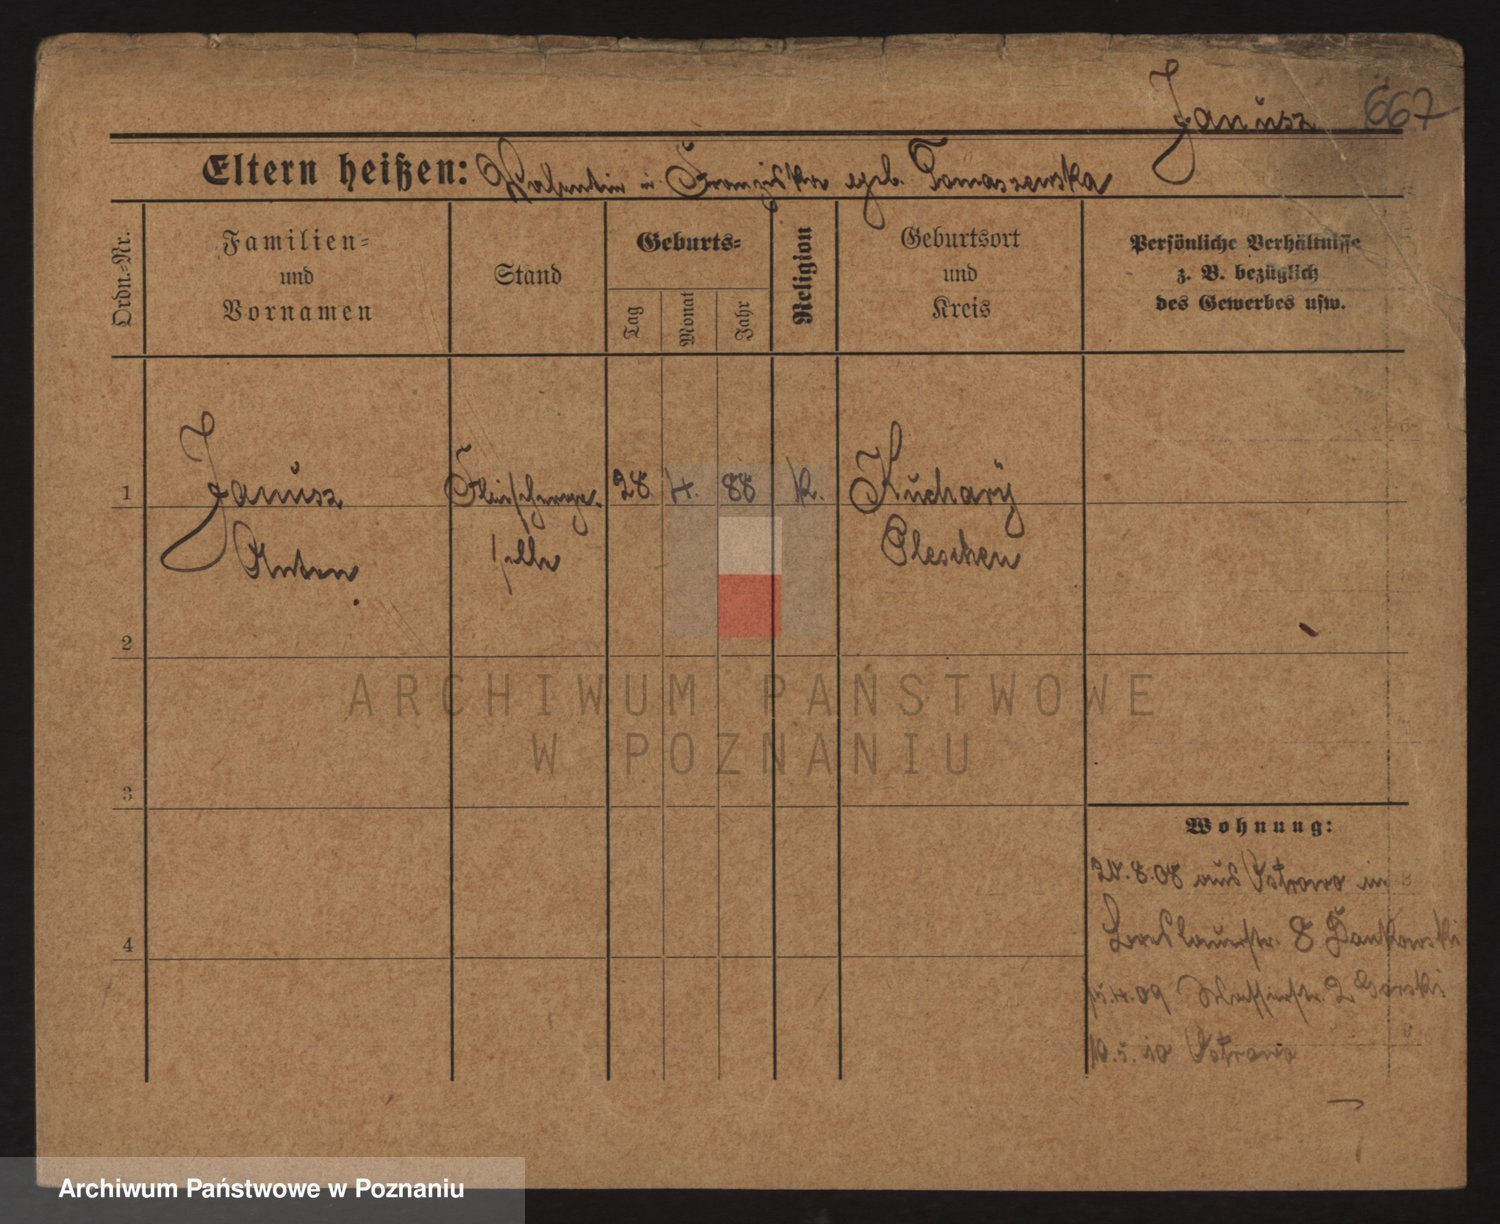 Janusz 667
Eltern heißen: Valentin u. Franziska geb. Tomaszewska
Ordn.-Nr.
Familien-
und
Vornamen
Stand
Geburts-
Tag
Monat
Jahr
Religion
Geburtsort
und
Kreis
Persönliche Verhältnisse
z. B. bezüglich
des Gewerbes usw.
1 Janusz Fleischerge- 28. 4. 88 k. Kuchary
Anton selle Pleschen
2
3
4
Wohnung:
28.8.08 aus Ostrowo in
Breslauerstr. 8 Jankowski
15.4.09 2 Gorski
10.5.10 Ostrowo
ARCHIWUM PAŃSTWOWE
W POZNANIU
Archiwum Państwowe w Poznaniu